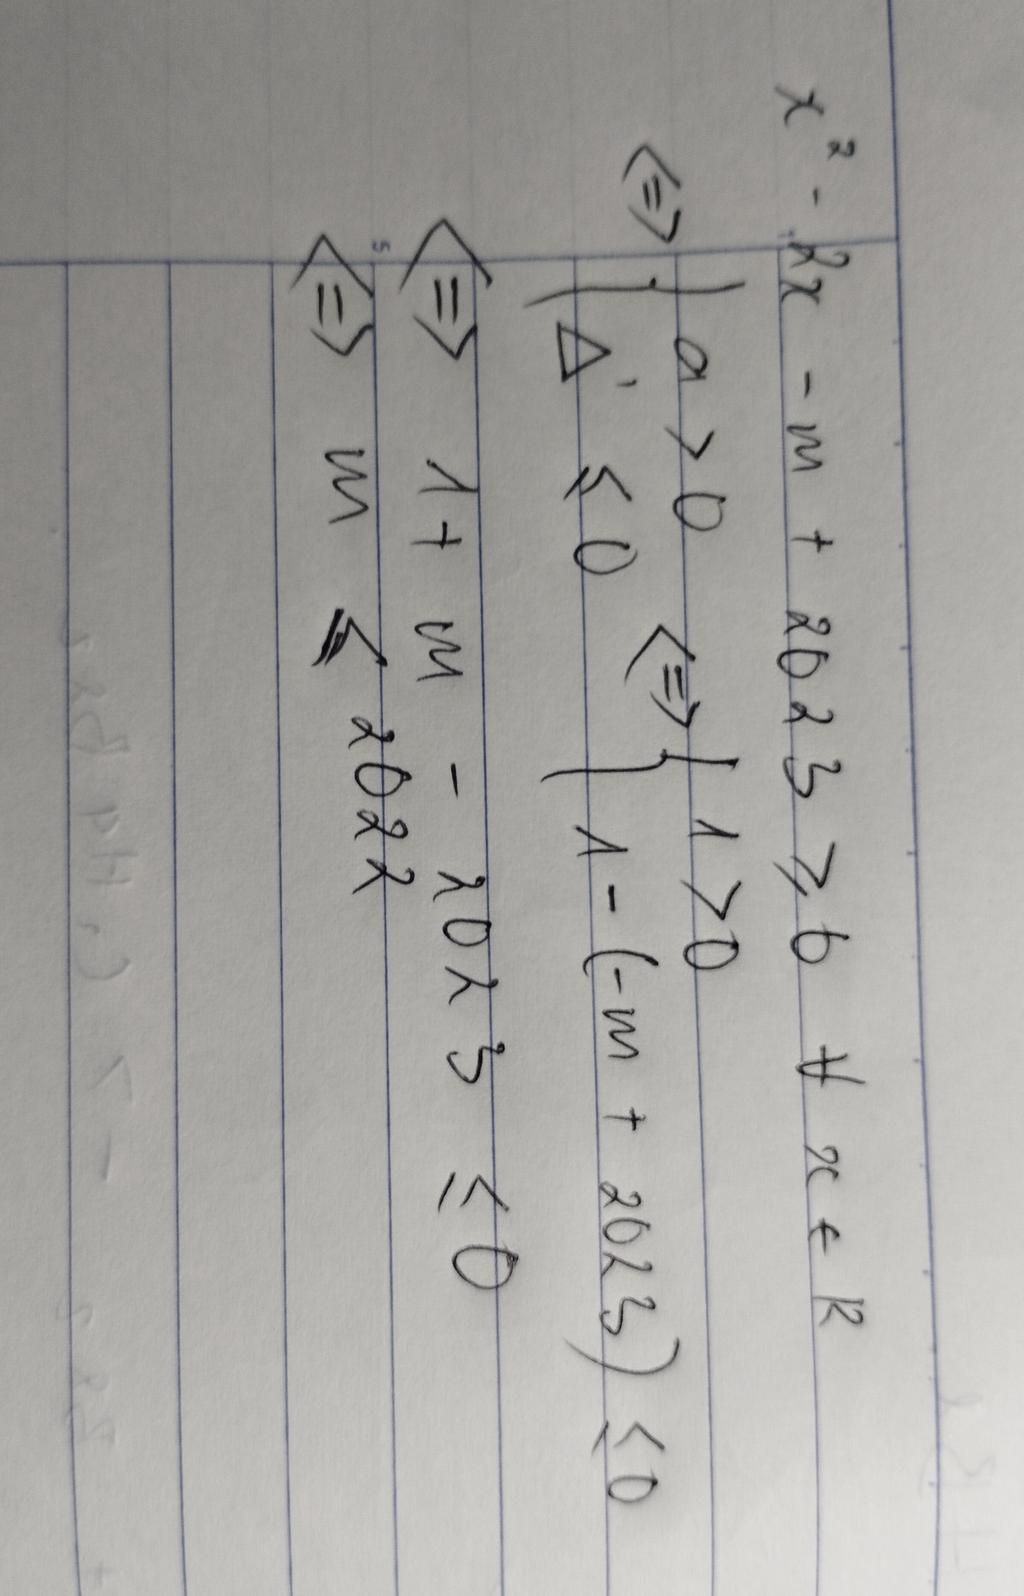 x² - 2x - m + 2023 ⩾ 0 ∀ x ∈ R
<=> { a > 0
Δ' ⩽ 0 <=> { 1 > 0
1 - (-m + 2023) ≤ 0
<=> 1 + m - 2023 ≤ 0
<=> m ⩽ 2022